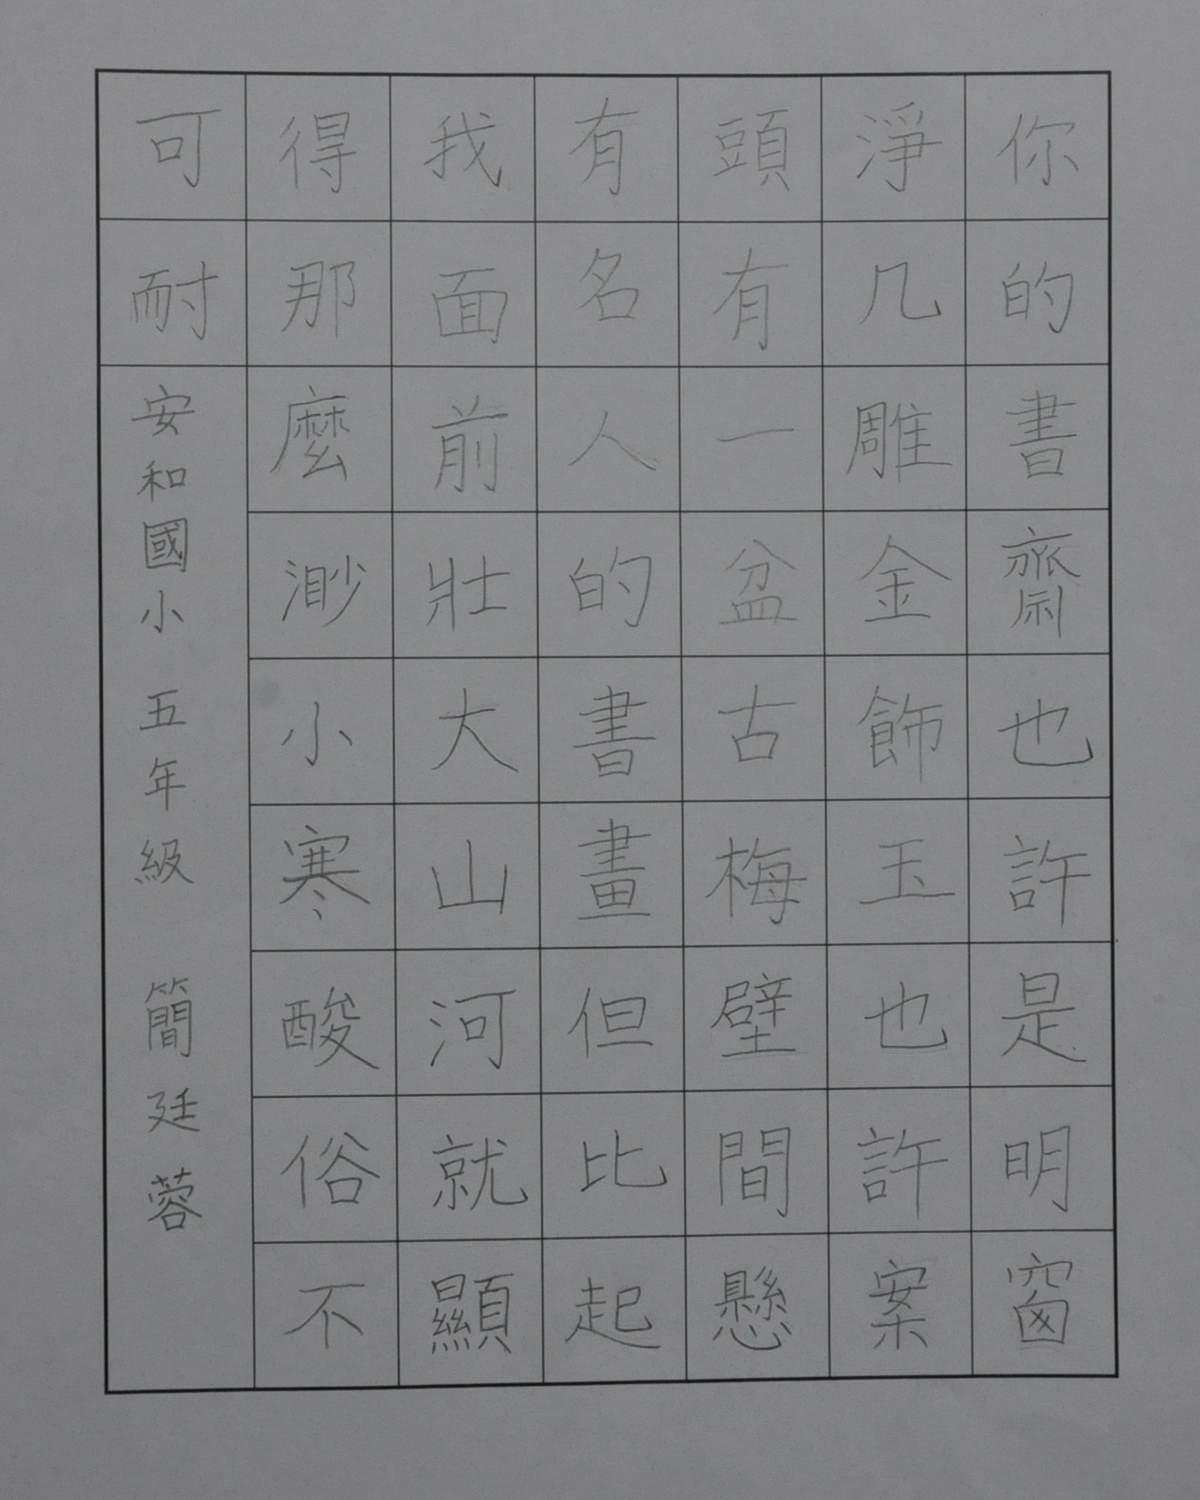 你的書齋也許是明窗
淨几雕金飾玉也許案
頭有一盆古梅壁間懸
有名人的書畫但比起
我面前壯大山河就顯
得那麼渺小寒酸俗不
可耐
安和國小 五年級 簡廷蓉